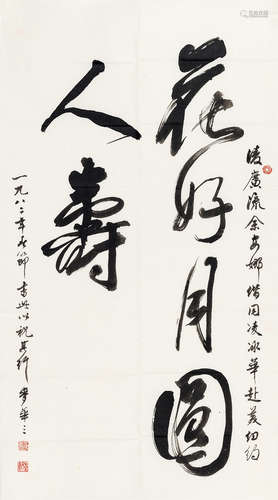 凌广流余安娜偕同凌冰华赴美纽约
花好月圆
人寿
一九八二年春节书此以祝其行